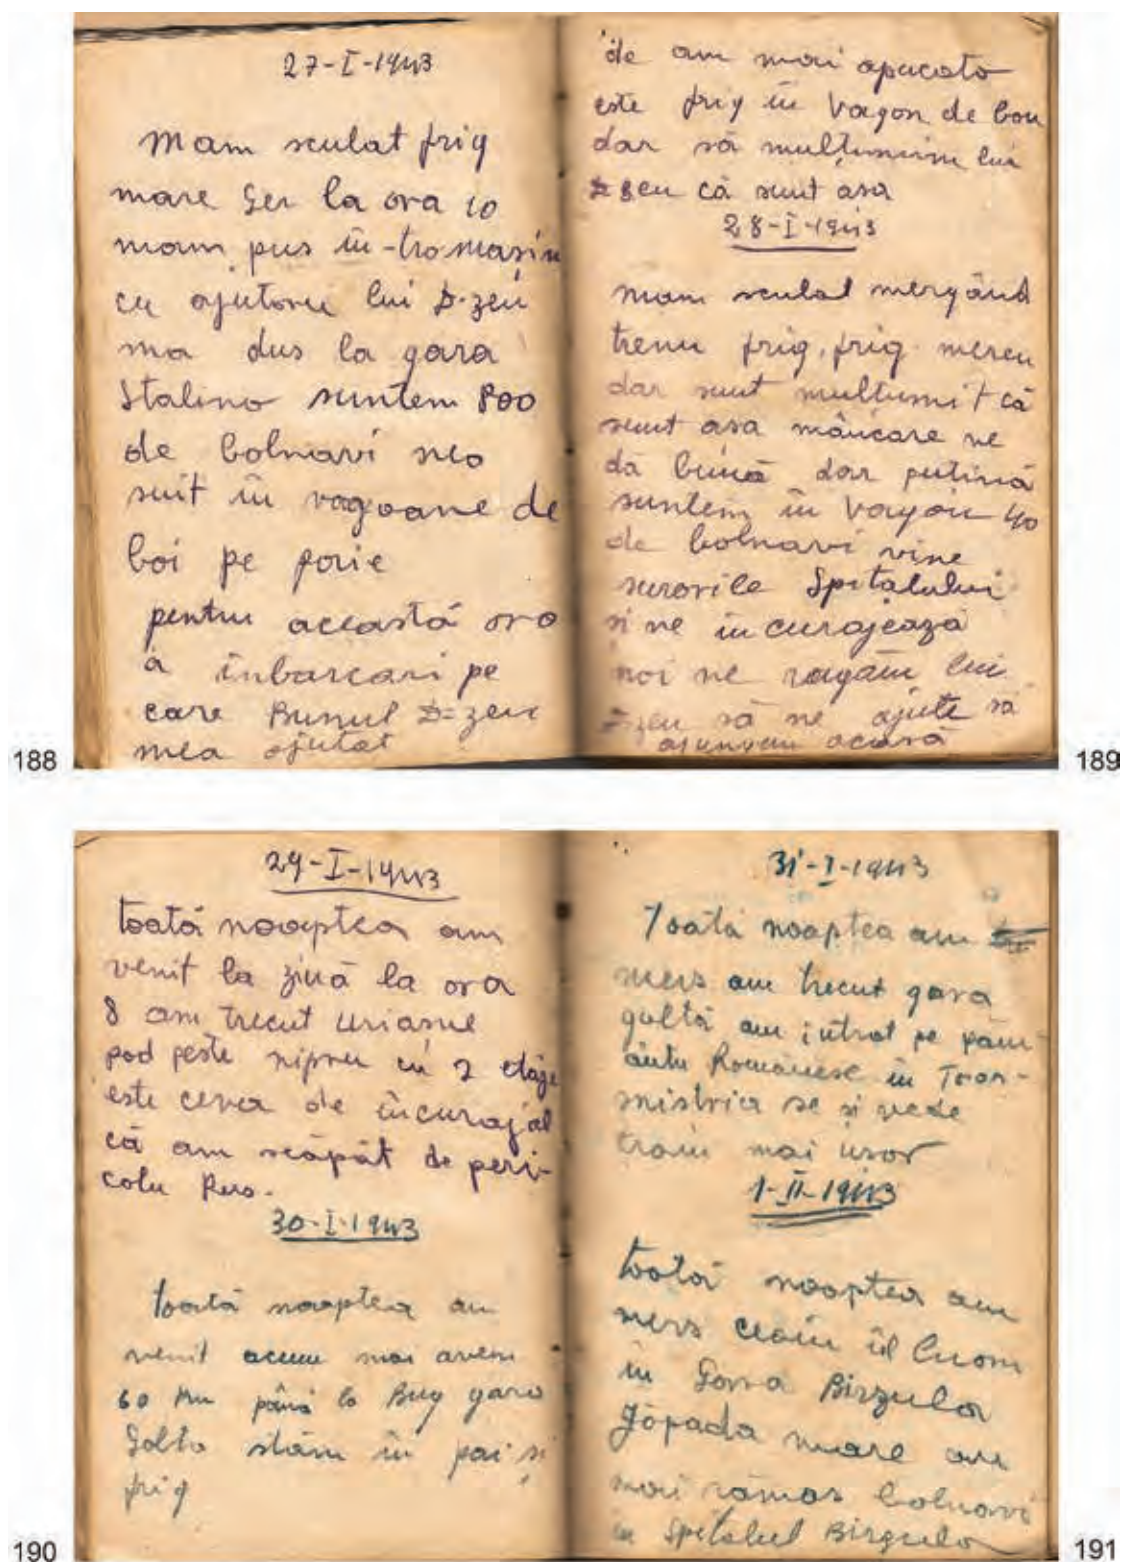 27-I-1943
Mam sculat frig
mare ger la ora 10
mam pus în-tro mașin
cu ajutoru lui D-zeu
ma dus la gara
Stalino suntem 800
de bolnavi neo
suit în vagoane de
boi pe
pentru această oro
a înbarcari pe
care Bunul D=zeu
mea ajutat
188
de am mai apucato
este frig în Vagon de bou
dar să mulțumim lui
D zeu că sunt asa
28-I-1943
mam sculat mergând
trenu frig, frig mereu
dar sunt multumit că
sunt asa mâncare ne
dă bună dar putină
suntem în Vagon 40
de bolnavi vine
surorile Spitalului
si ne în curajează
noi ne rugăm lui
D=zeu să ne ajute să
ajungem acasă
189
29-I-1943
toată nooptea am
venit la ziuă la ora
8 am trecut uriasul
pod peste nipru cu 2 etaje
este ceva de încurajat
că am scăpat de peri-
colu Rus.
30-I-1943
toată nooptea am
venit acum mai avem
60 km până la Bug gara
Golta stăm în pai și
frig
190
31-I-1943
Toată nooptea am
mers am trecut gara
golta am intrat pe păm
ântu Românesc în Tran-
snistria se si vede
traiu mai usor
1-II-1943
toată nooptea am
mers ceaiu îl luom
în Gara Birzula
Zăpada mare am
mai rămas bolnavi
în Spitalul Birzula
191